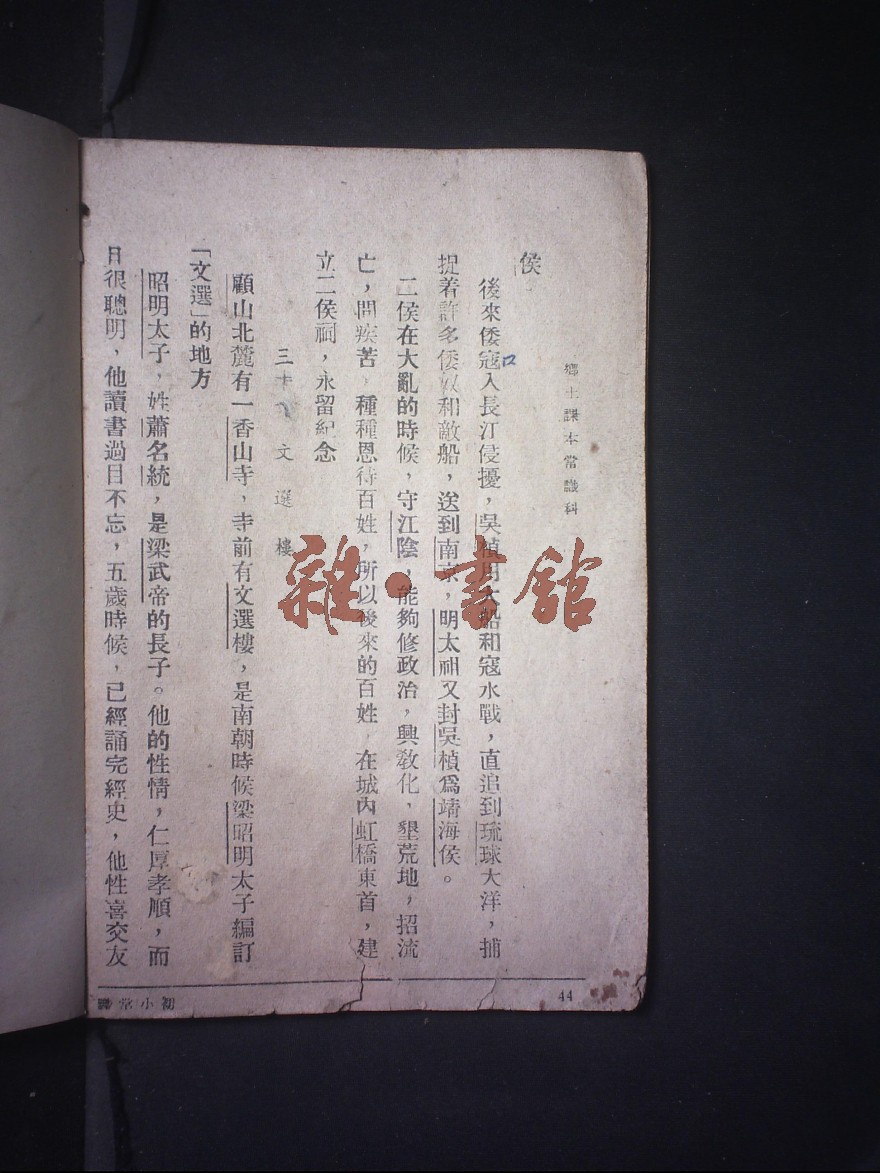 鄉土課本常識科
侯
後來倭寇入長江侵擾，吳楨用大船和寇水戰，直追到琉球大洋，捕
口
捉着許多倭奴和敵船，送到南京，明太祖又封吳楨爲靖海侯。
二侯在大亂的時候，守江陰，能夠修政治，興教化，墾荒地，招流
亡，問疾苦，種種恩待百姓，所以後來的百姓，在城內虹橋東首，建
立二侯祠，永留紀念
三十 文選樓
顧山北麓有一香山寺，寺前有文選樓，是南朝時候梁昭明太子編訂
「文選」的地方
昭明太子，姓蕭名統，是梁武帝的長子。他的性情，仁厚孝順，而
且很聰明，他讀書過目不忘，五歲時候，已經誦完經史，他性喜交友
44
初小常識
雜·書館